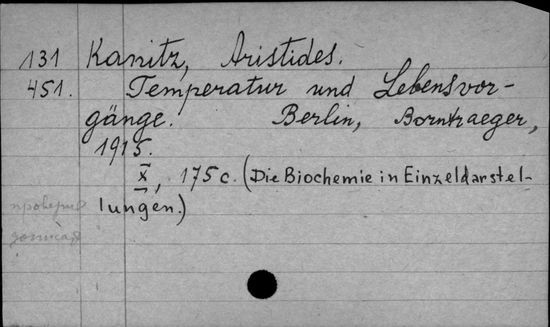 131 Kanitz, Aristides.
451. Temperatur und Lebensvor-
gänge. Berlin, Borntraeger,
1915.
X, 175 c. (Die Biochemie in Einzeldarstel-
lungen.)